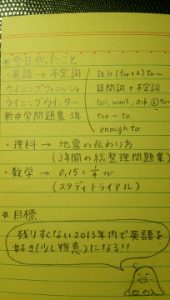 ＊今日やったこと
・英語 → 不定詞
ウイニングフィニッシュ
ウイニングウインター
新中学問題集3年
It is (for+人) to~
疑問詞 + 不定詞
tell, want, ask 人 to~
too ~ to
enough to
・理科 → 地震の伝わり方
(3年間の総整理問題集)
・数学 → 0.15 =
(スタディトライアル)
＊目標
残り少ない2013年内で英語を
好き(少し得意)になる!!